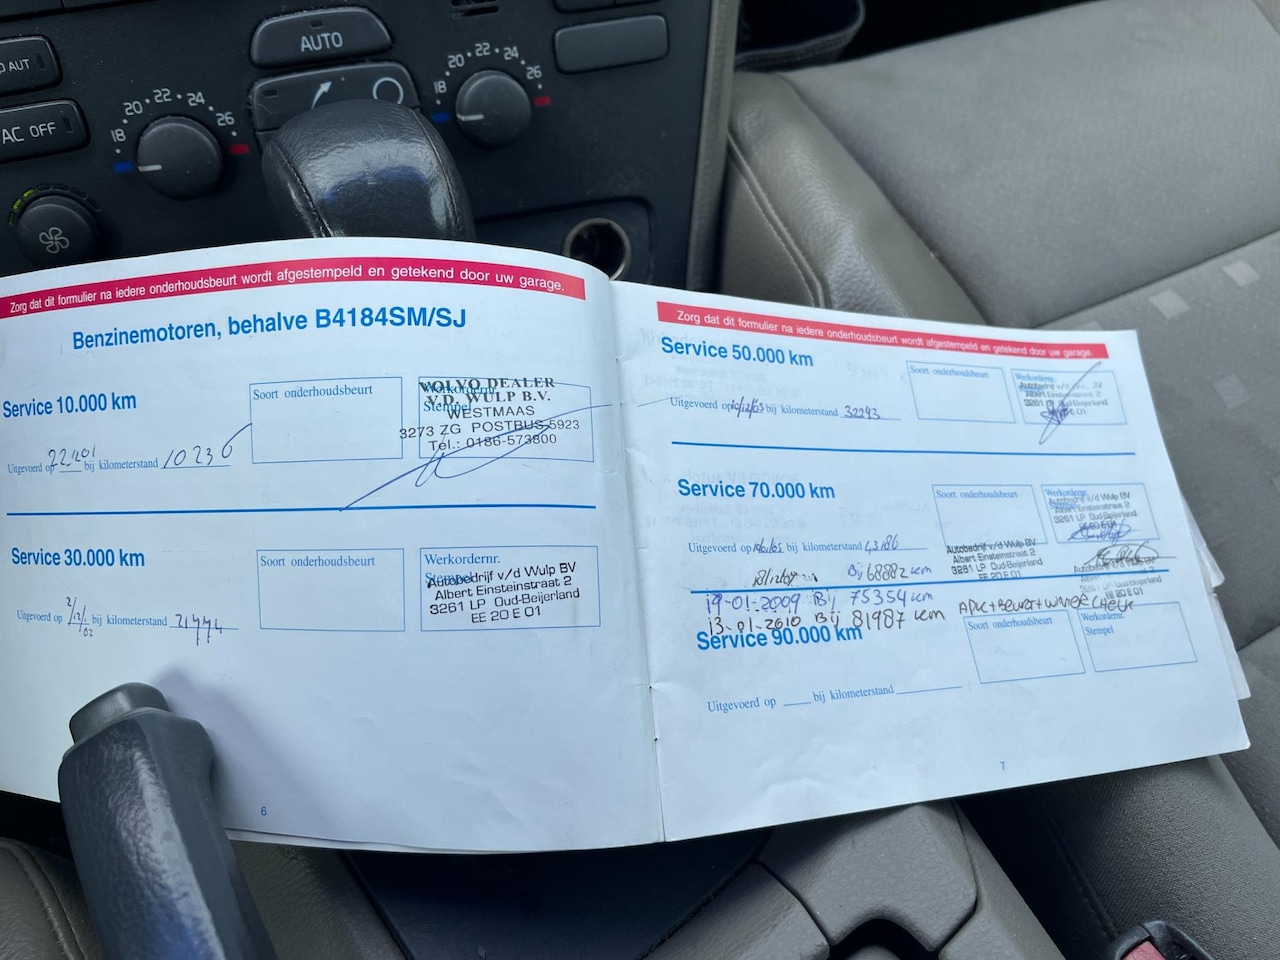 AUTO
AUT
AC OFF
18 20 22 24 26
18 20 22 24 26
Zorg dat dit formulier na iedere onderhoudsbeurt wordt afgestempeld en getekend door uw garage.
Benzinemotoren, behalve B4184SM/SJ
Service 10.000 km
Soort onderhoudsbeurt
Werkordernr.
Stempel
VOLVO DEALER
V.D. WULP B.V.
WESTMAAS
3273 ZG POSTBUS 5923
Tel.: 0186-573800
Uitgevoerd op bij kilometerstand 10236
Service 30.000 km
Soort onderhoudsbeurt
Werkordernr.
Stempel
Autobedrijf v/d Wulp BV
Albert Einsteinstraat 2
3261 LP Oud-Beijerland
EE 20 E 01
Uitgevoerd op 2/12/02 bij kilometerstand 21774
6
Zorg dat dit formulier na iedere onderhoudsbeurt wordt afgestempeld en getekend door uw garage.
Service 50.000 km
Soort onderhoudsbeurt
Werkordernr.
Autobedrijf v/d BV
Albert Einsteinstraat 2
3261 Oud-Beijerland
E 01
Uitgevoerd op 10/12/03 bij kilometerstand 32293
Service 70.000 km
Soort onderhoudsbeurt
Werkordernr.
Autobedrijf v/d Wulp BV
Albert Einsteinstraat 2
3261 LP Oud-Beijerland
EE 20 E 01
Uitgevoerd op bij kilometerstand 43186
Autobedrijf v/d Wulp BV
Albert Einsteinstraat 2
3261 LP Oud-Beijerland
EE 20 E 01
18/12/07 Bij 68882 km
19-01-2009 Bij 75354 km
13-01-2010 Bij 81987 km APK+BEURT+WINTERCHECK
Service 90.000 km
Soort onderhoudsbeurt
Werkordernr.
Stempel
Uitgevoerd op bij kilometerstand
7